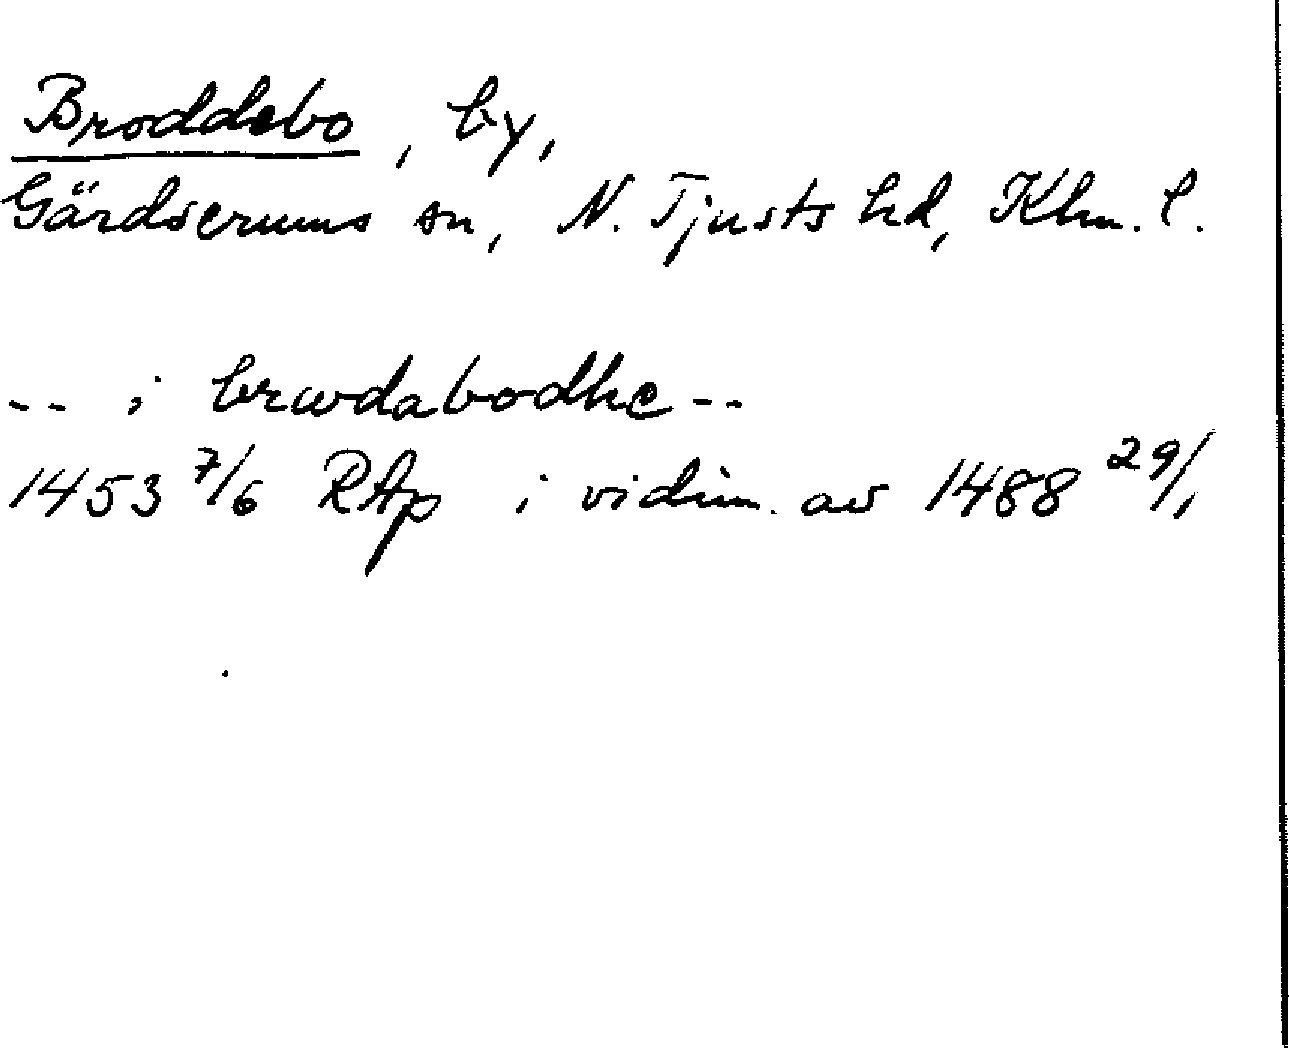 Broddebo, by,
Gärdserums sn, N. Tjusts hd, Klm. l.
-- i brwdabodhe --
1453 7/6 RAp i vidim. av 1488 29/1